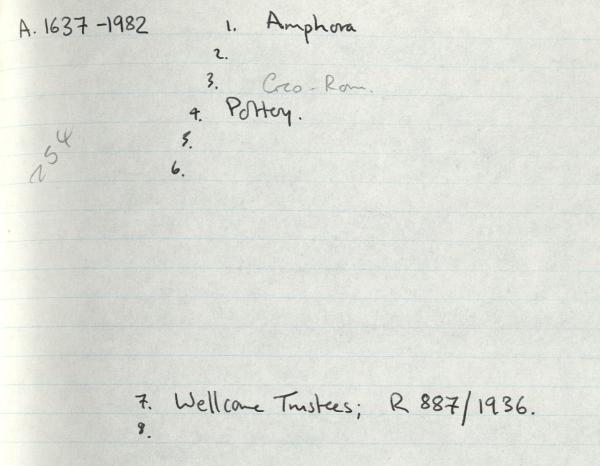 A. 1637-1982 1. Amphora
2.
3. Greco-Rom.
4. Pottery.
254
5.
6.
7. Wellcome Trustees; R 887/1936.
8.